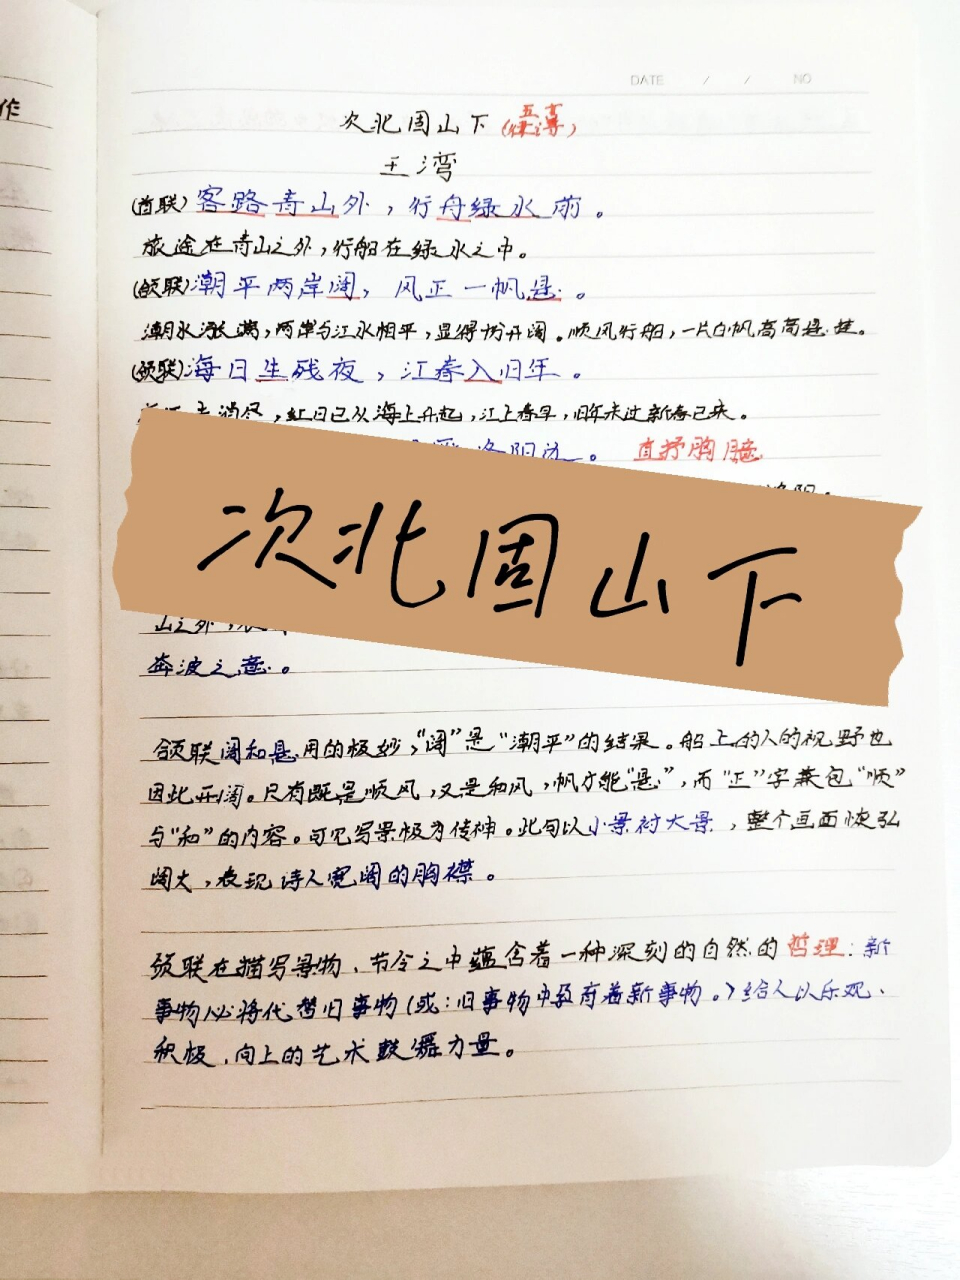 作
DATE / / NO
次北固山下(五言律诗)
王湾
(首联)客路青山外，行舟绿水前。
旅途在青山之外，行船在绿水之中。
(颔联)潮平两岸阔，风正一帆悬。
潮水涨满，两岸与江水相平，显得十分开阔。顺风行船，一片白帆高高悬挂。
(颈联)海日生残夜，江春入旧年。
未消尽，红日已从海上升起，江上春早，旧年未过新春已来。
洛阳边。 直抒胸臆
洛阳。
次北固山下
山之外，
奔波之意。
颔联阔和悬用的极妙，“阔”是“潮平”的结果。船上的人的视野也
因此开阔。只有既是顺风，又是和风，帆才能“悬”，而“正”字兼包“顺”
与“和”的内容。可见写景极为传神。此句以小景衬大景，整个画面恢弘
阔大，表现诗人宽阔的胸襟。
颈联在描写景物、节令之中蕴含着一种深刻的自然的哲理：新
事物必将代替旧事物(或：旧事物中孕育着新事物。)给人以乐观、
积极、向上的艺术鼓舞力量。